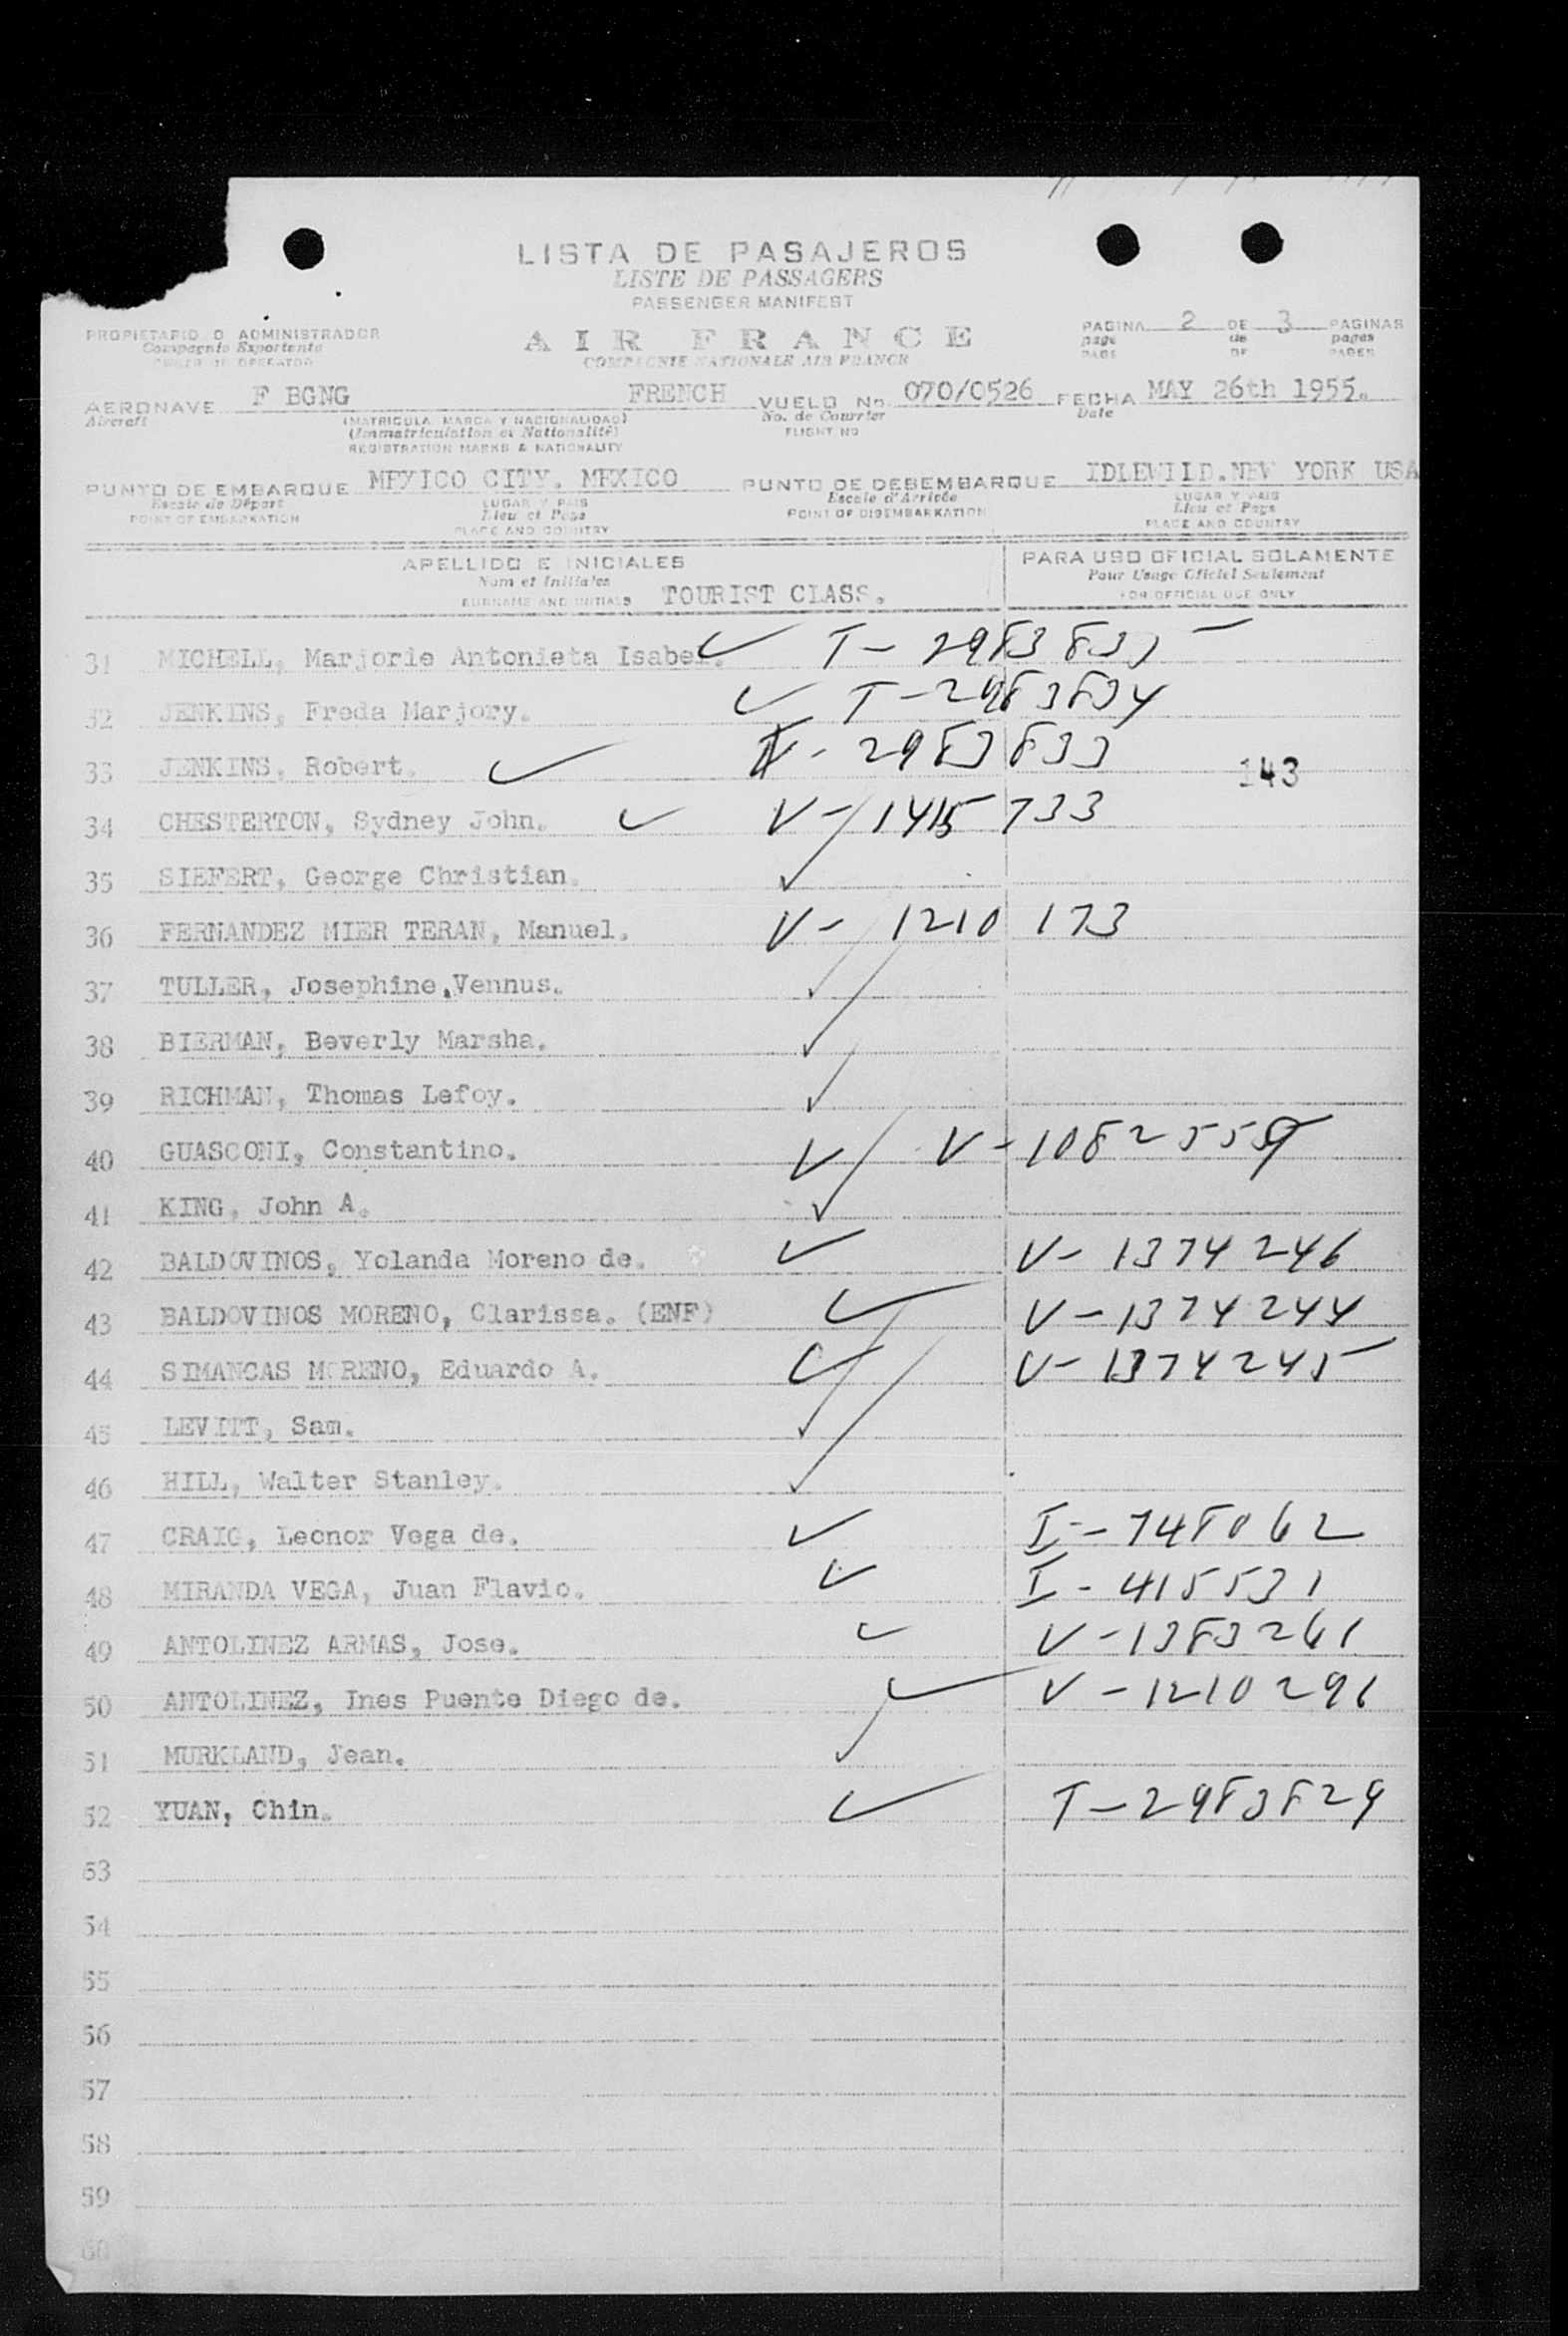 LISTA DE PASAJEROS
LISTE DE PASSAGERS
PASSENGER MANIFEST
PROPIETARIO O ADMINISTRADOR
Compagnie Exportante
OWNER OR OPERATOR
AIR FRANCE
COMPAGNIE NATIONALE AIR FRANCE
PAGINA 2 DE 3 PAGINAS
page de pages
PAGE OF PAGES
AERONAVE F BGNG FRENCH VUELO No 070/0526 FECHA MAY 26th 1955.
Aircraft (MATRICULA MARCA Y NACIONALIDAD) No. de Courrier Date
(Immatriculation et Nationalité) FLIGHT NO
REGISTRATION MARKS & NATIONALITY
PUNTO DE EMBARQUE MEXICO CITY. MEXICO PUNTO DE DESEMBARQUE IDLEWILD.NEW YORK USA
Escale de Départ LUGAR Y PAIS Escale d'Arrivée LUGAR Y PAIS
POINT OF EMBARKATION Lieu et Pays POINT OF DISEMBARKATION Lieu et Pays
PLACE AND COUNTRY PLACE AND COUNTRY
APELLIDO E INICIALES PARA USO OFICIAL SOLAMENTE
Nom et Initiales Pour Usage Officiel Seulement
SURNAME AND INITIALS TOURIST CLASS. FOR OFFICIAL USE ONLY
31 MICHELL, Marjorie Antonieta Isabel. ✓ T-2983835
32 JENKINS, Freda Marjory. ✓ T-2983834
33 JENKINS, Robert. ✓ T-2983833 143
34 CHESTERTON, Sydney John. ✓ V-1415733
35 SIEFERT, George Christian. ✓
36 FERNANDEZ MIER TERAN, Manuel. V-1210173
37 TULLER, Josephine Vennus. ✓
38 BIERMAN, Beverly Marsha. ✓
39 RICHMAN, Thomas Lefoy. ✓
40 GUASCONI, Constantino. ✓ V-1082559
41 KING, John A. ✓
42 BALDOVINOS, Yolanda Moreno de. ✓ V-1374246
43 BALDOVINOS MORENO, Clarissa. (ENF) ✓ V-1374244
44 SIMANCAS MORENO, Eduardo A. ✓ V-1374245
45 LEVITT, Sam. ✓
46 HILL, Walter Stanley. ✓
47 CRAIG, Leonor Vega de. ✓ I-748062
48 MIRANDA VEGA, Juan Flavio. ✓ I-415531
49 ANTOLINEZ ARMAS, Jose. ✓ V-1383261
50 ANTOLINEZ, Ines Puente Diego de. ✓ V-1210291
51 MURKLAND, Jean. ✓
52 YUAN, Chin. ✓ T-2983829
53
54
55
56
57
58
59
60